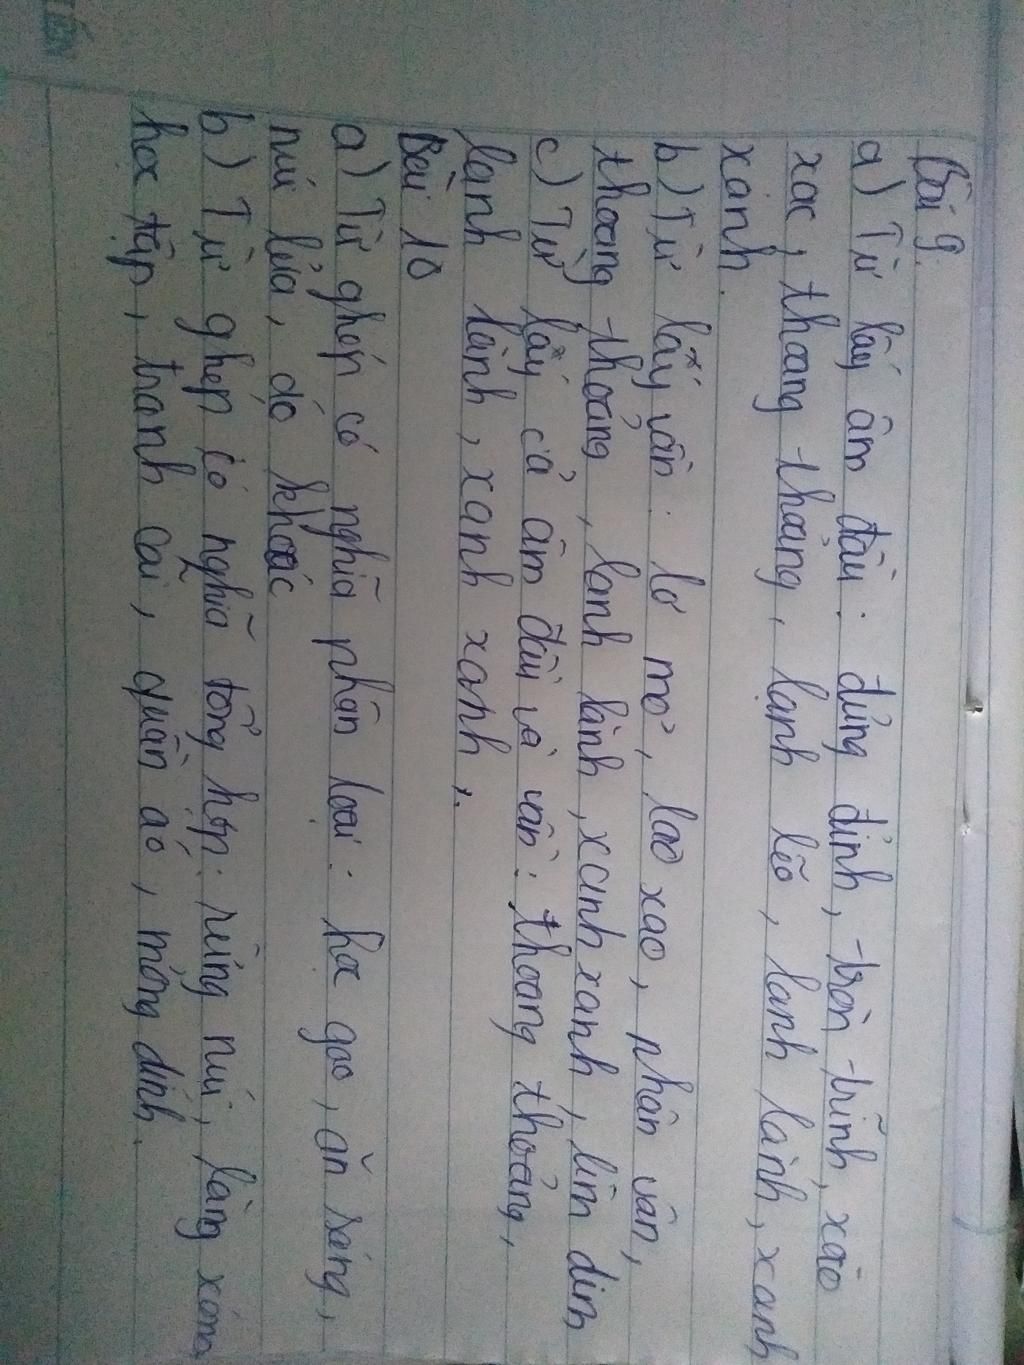 Bài 9.
a) Từ láy âm đầu: đủng đỉnh, tròn trĩnh, xào
xạc, thoang thoảng, lạnh lẽo, lanh lảnh, xanh
xanh.
b) Từ láy vần: lơ mơ, lao xao, phân vân,
thoang thoảng, lanh lảnh, xanh xanh, lim dim
c) Từ láy cả âm đầu và vần: thoang thoảng,
lanh lảnh, xanh xanh,.
Bài 10
a) Từ ghép có nghĩa phân loại: hạt gạo, ăn sáng,
núi lửa, áo khoác
b) Từ ghép có nghĩa tổng hợp: rừng núi, làng xóm
học tập, tranh cãi, quần áo, mỏng dính.